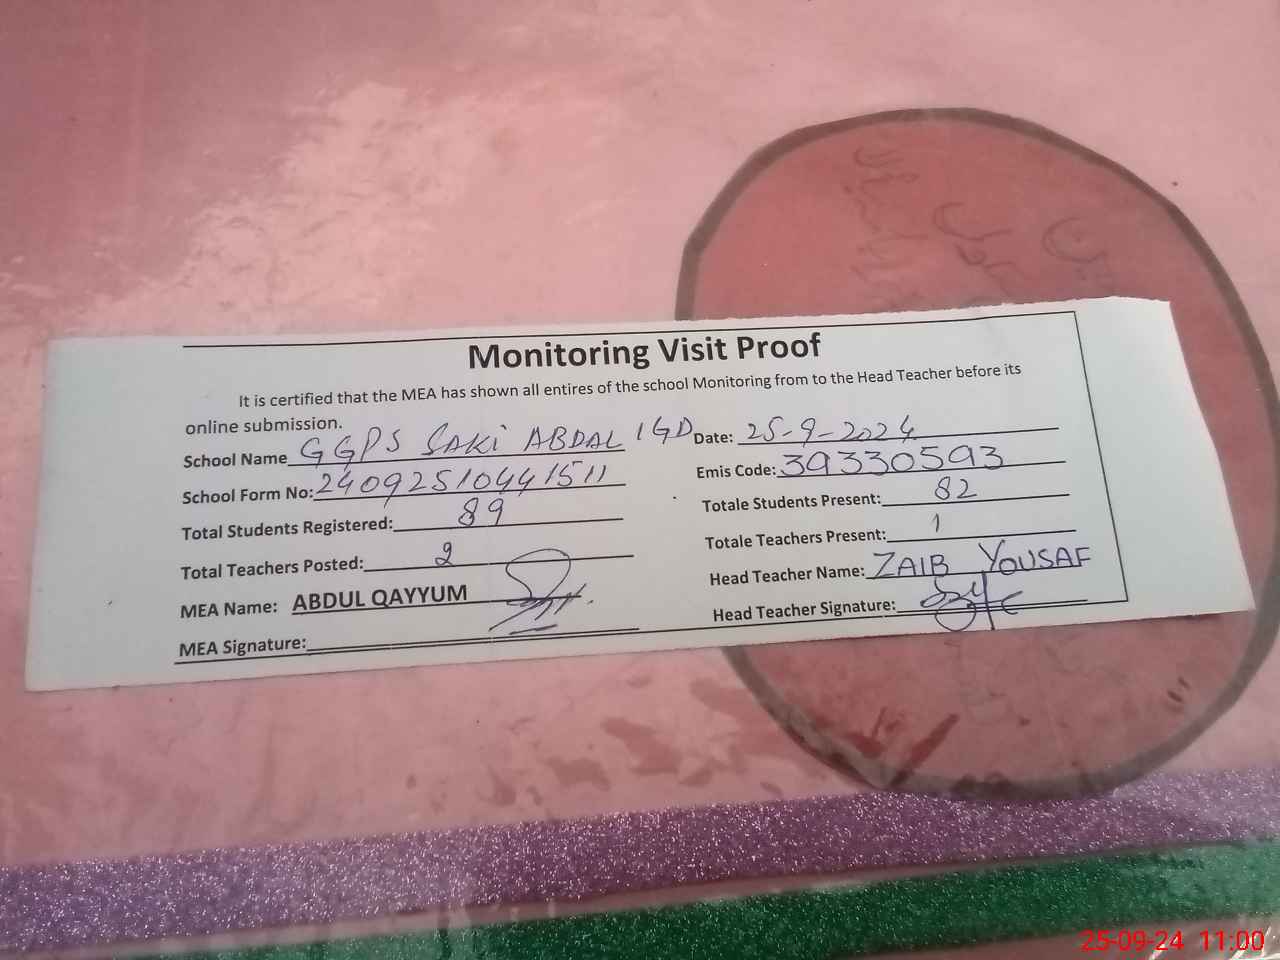 Monitoring Visit Proof
It is certified that the MEA has shown all entires of the school Monitoring from to the Head Teacher before its
online submission.
School Name GGPS SAKI ABDAL 1GD Date: 25-9-2024
School Form No: 24092510441511 Emis Code: 39330593
Total Students Registered: 89 Totale Students Present: 82
Total Teachers Posted: 2 Totale Teachers Present: 1
MEA Name: ABDUL QAYYUM Head Teacher Name: ZAIB YOUSAF
MEA Signature: Head Teacher Signature:
25-09-24 11:00